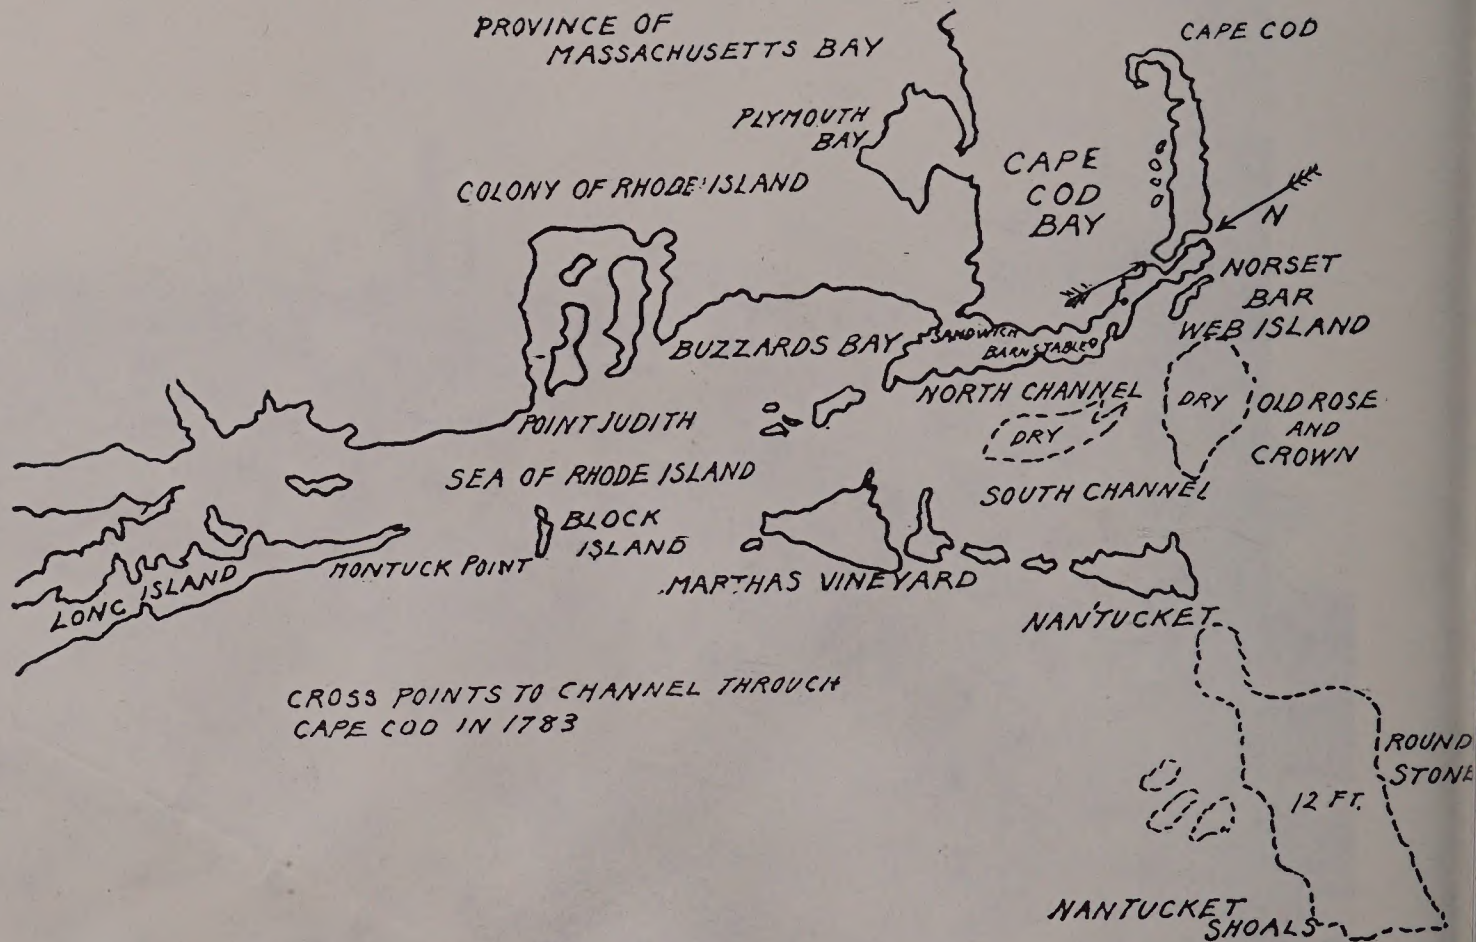 PROVINCE OF
MASSACHUSETTS BAY
CAPE COD
PLYMOUTH
BAY
CAPE
COD
BAY
COLONY OF RHODE ISLAND
N
NORSET
BAR
WEB ISLAND
BUZZARDS BAY
SANDWICH
BARNSTABLE
NORTH CHANNEL
DRY
OLD ROSE
AND
CROWN
POINT JUDITH
DRY
SEA OF RHODE ISLAND
SOUTH CHANNEL
BLOCK
ISLAND
MONTUCK POINT
LONG ISLAND
MARTHAS VINEYARD
NANTUCKET
CROSS POINTS TO CHANNEL THROUGH
CAPE COD IN 1783
ROUND
STONE
12 FT.
NANTUCKET
SHOALS